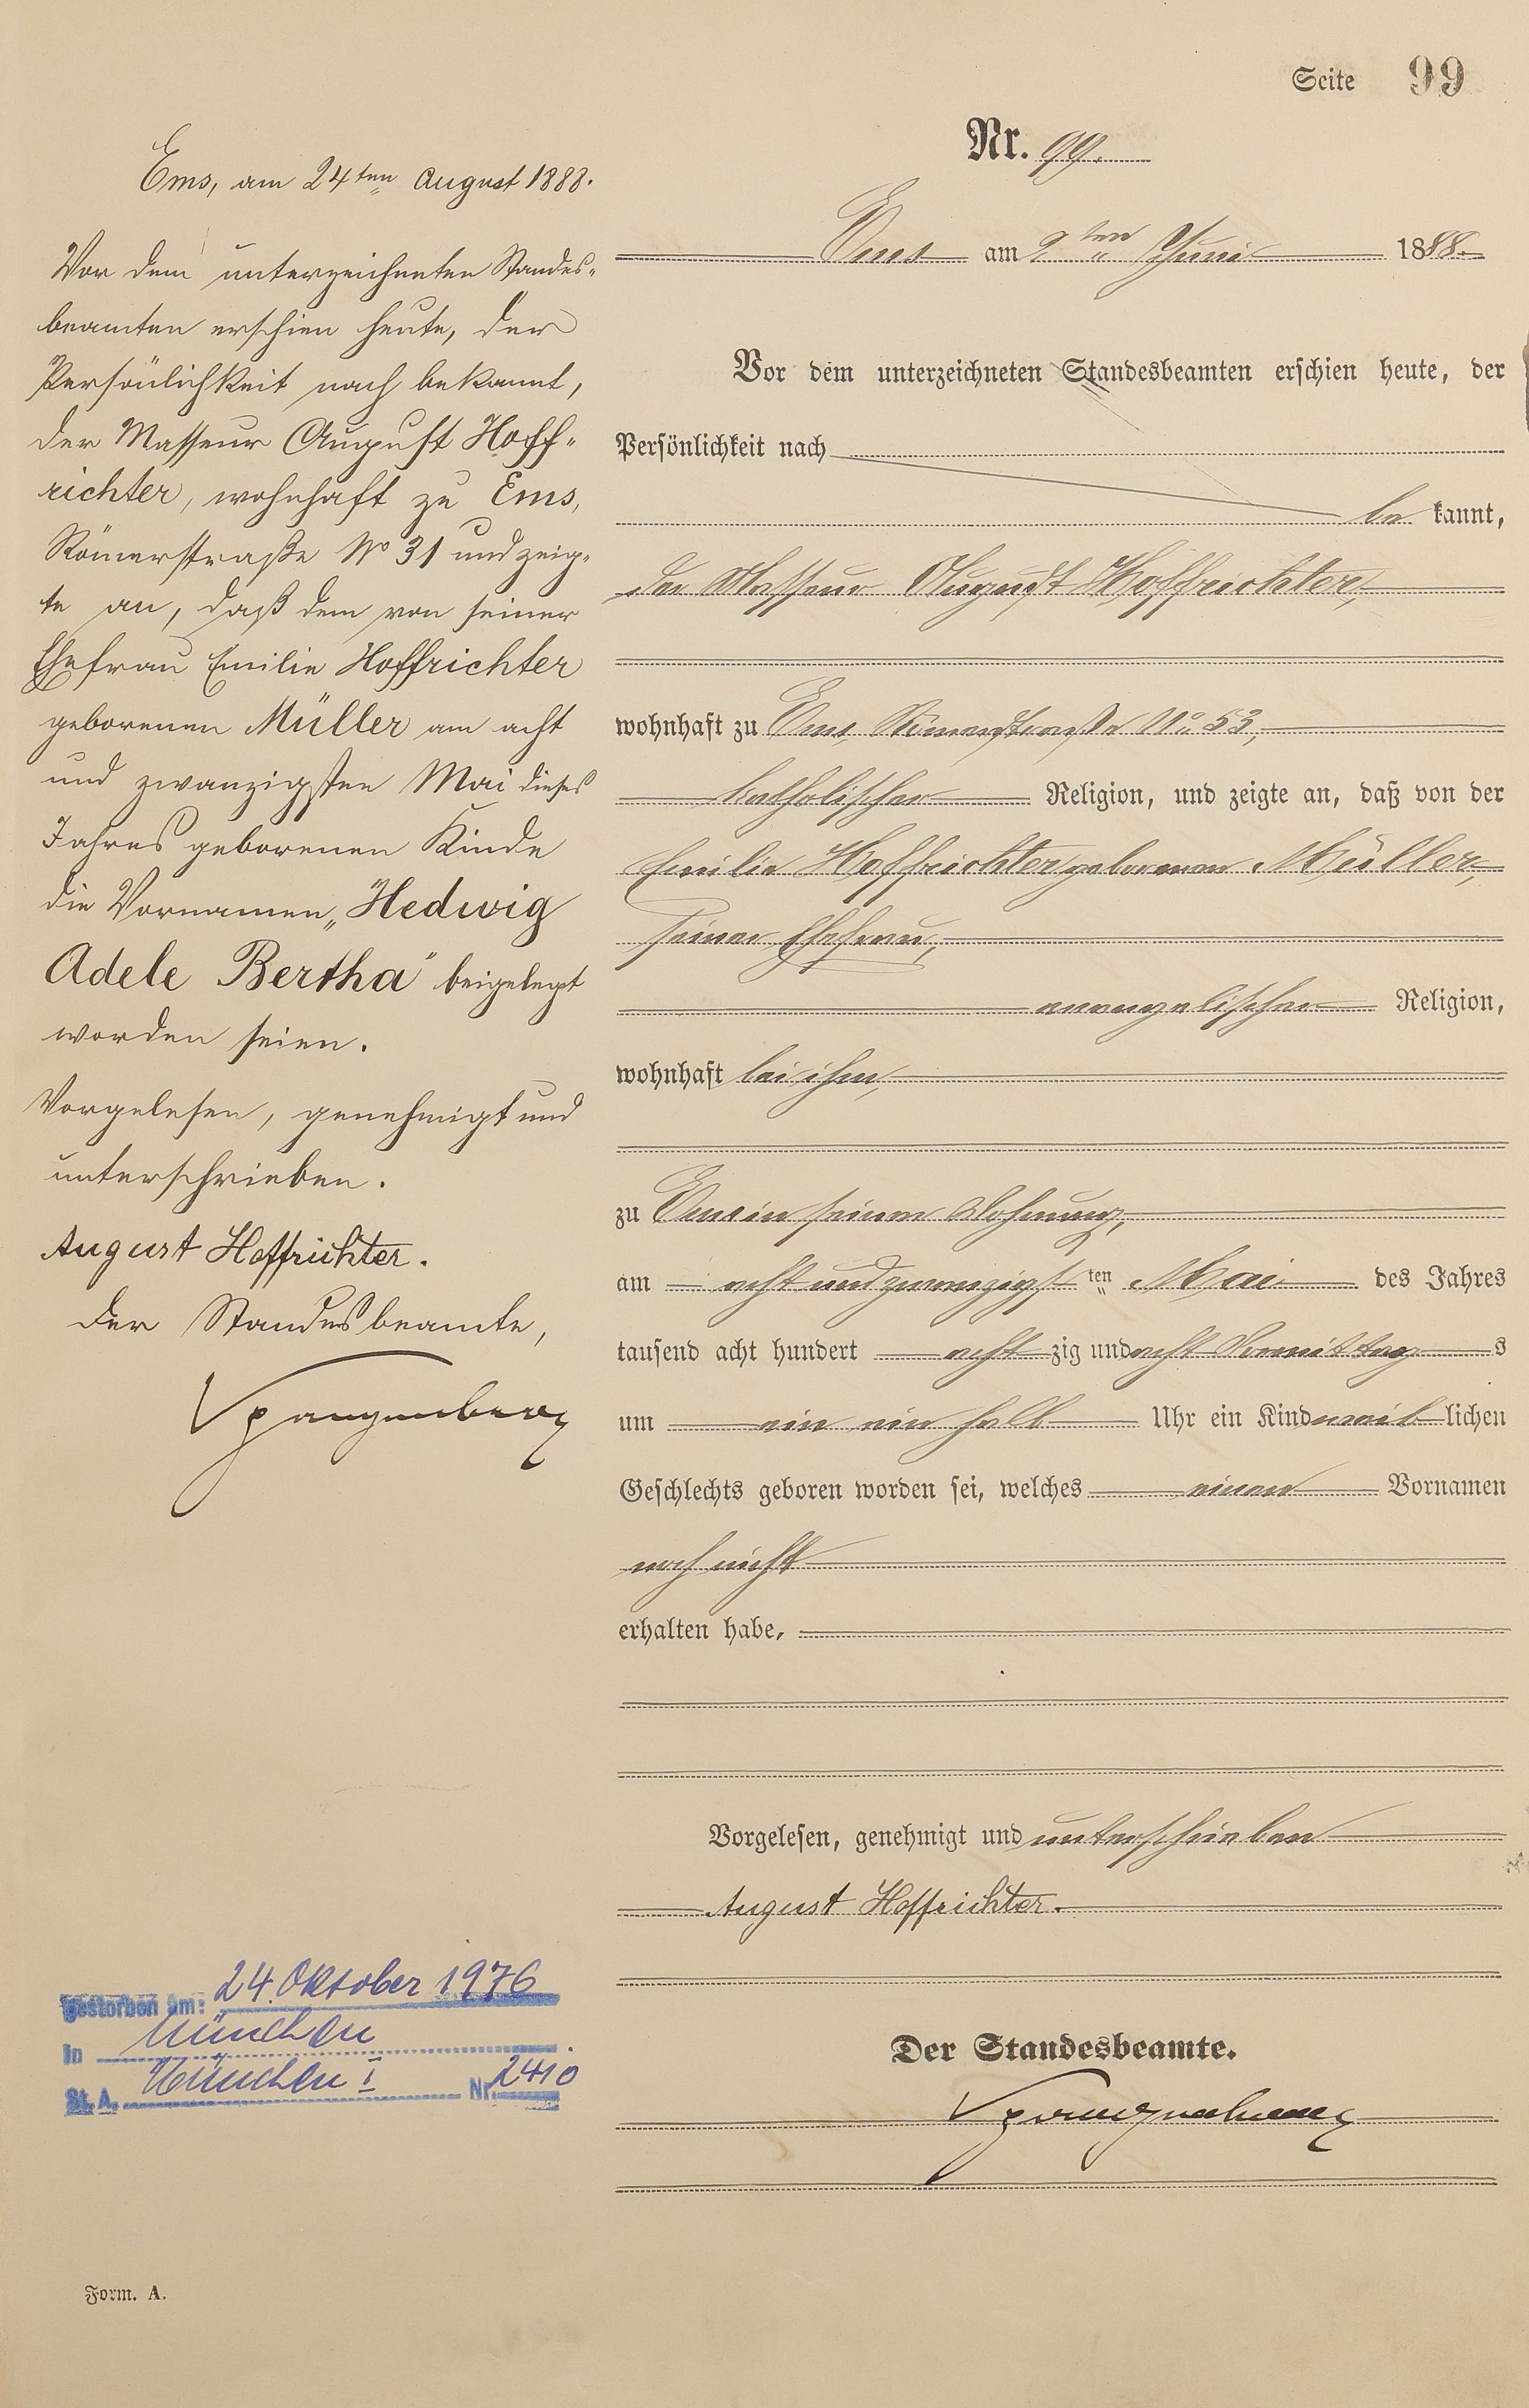 Seite 99
Nr. 99.
Ems, am 24ten August 1888.
Vor dem unterzeichneten Standes-
beamten erschien heute, der
Persönlichkeit nach bekannt,
der Masseur August Hoff-
richter, wohnhaft zu Ems,
Römerstraße No 31 und zeig-
te an, daß dem von seiner
Ehefrau Emilie Hoffrichter
geborenen Müller am acht
und zwanzigsten Mai dieses
Jahres geborenen Kinde
die Vornamen „Hedwig
Adele Bertha" beigelegt
worden seien.
Vorgelesen, genehmigt und
unterschrieben.
August Hoffrichter.
Der Standesbeamte,
Spangenberg
Ems am 2ten Juni 1888.
Vor dem unterzeichneten Standesbeamten erschien heute, der
Persönlichkeit nach
be kannt,
der Masseur August Hoffrichter,
wohnhaft zu Ems, Römerstraße No 53,
katholischer Religion, und zeigte an, daß von der
Emilie Hoffrichter geborenen Müller,
seiner Ehefrau,
evangelischer Religion,
wohnhaft bei ihm,
zu Ems in seiner Wohnung,
am acht und zwanzigst ten Mai des Jahres
tausend acht hundert acht zig und acht Vormittag s
um ein ein halb Uhr ein Kind weib lichen
Geschlechts geboren worden sei, welches einen Vornamen
noch nicht
erhalten habe,
Vorgelesen, genehmigt und unterschrieben
August Hoffrichter.
Der Standesbeamte.
Spangenberg
Gestorben am: 24. Oktober 1976
in München
St. A. München I Nr. 2410
Form. A.